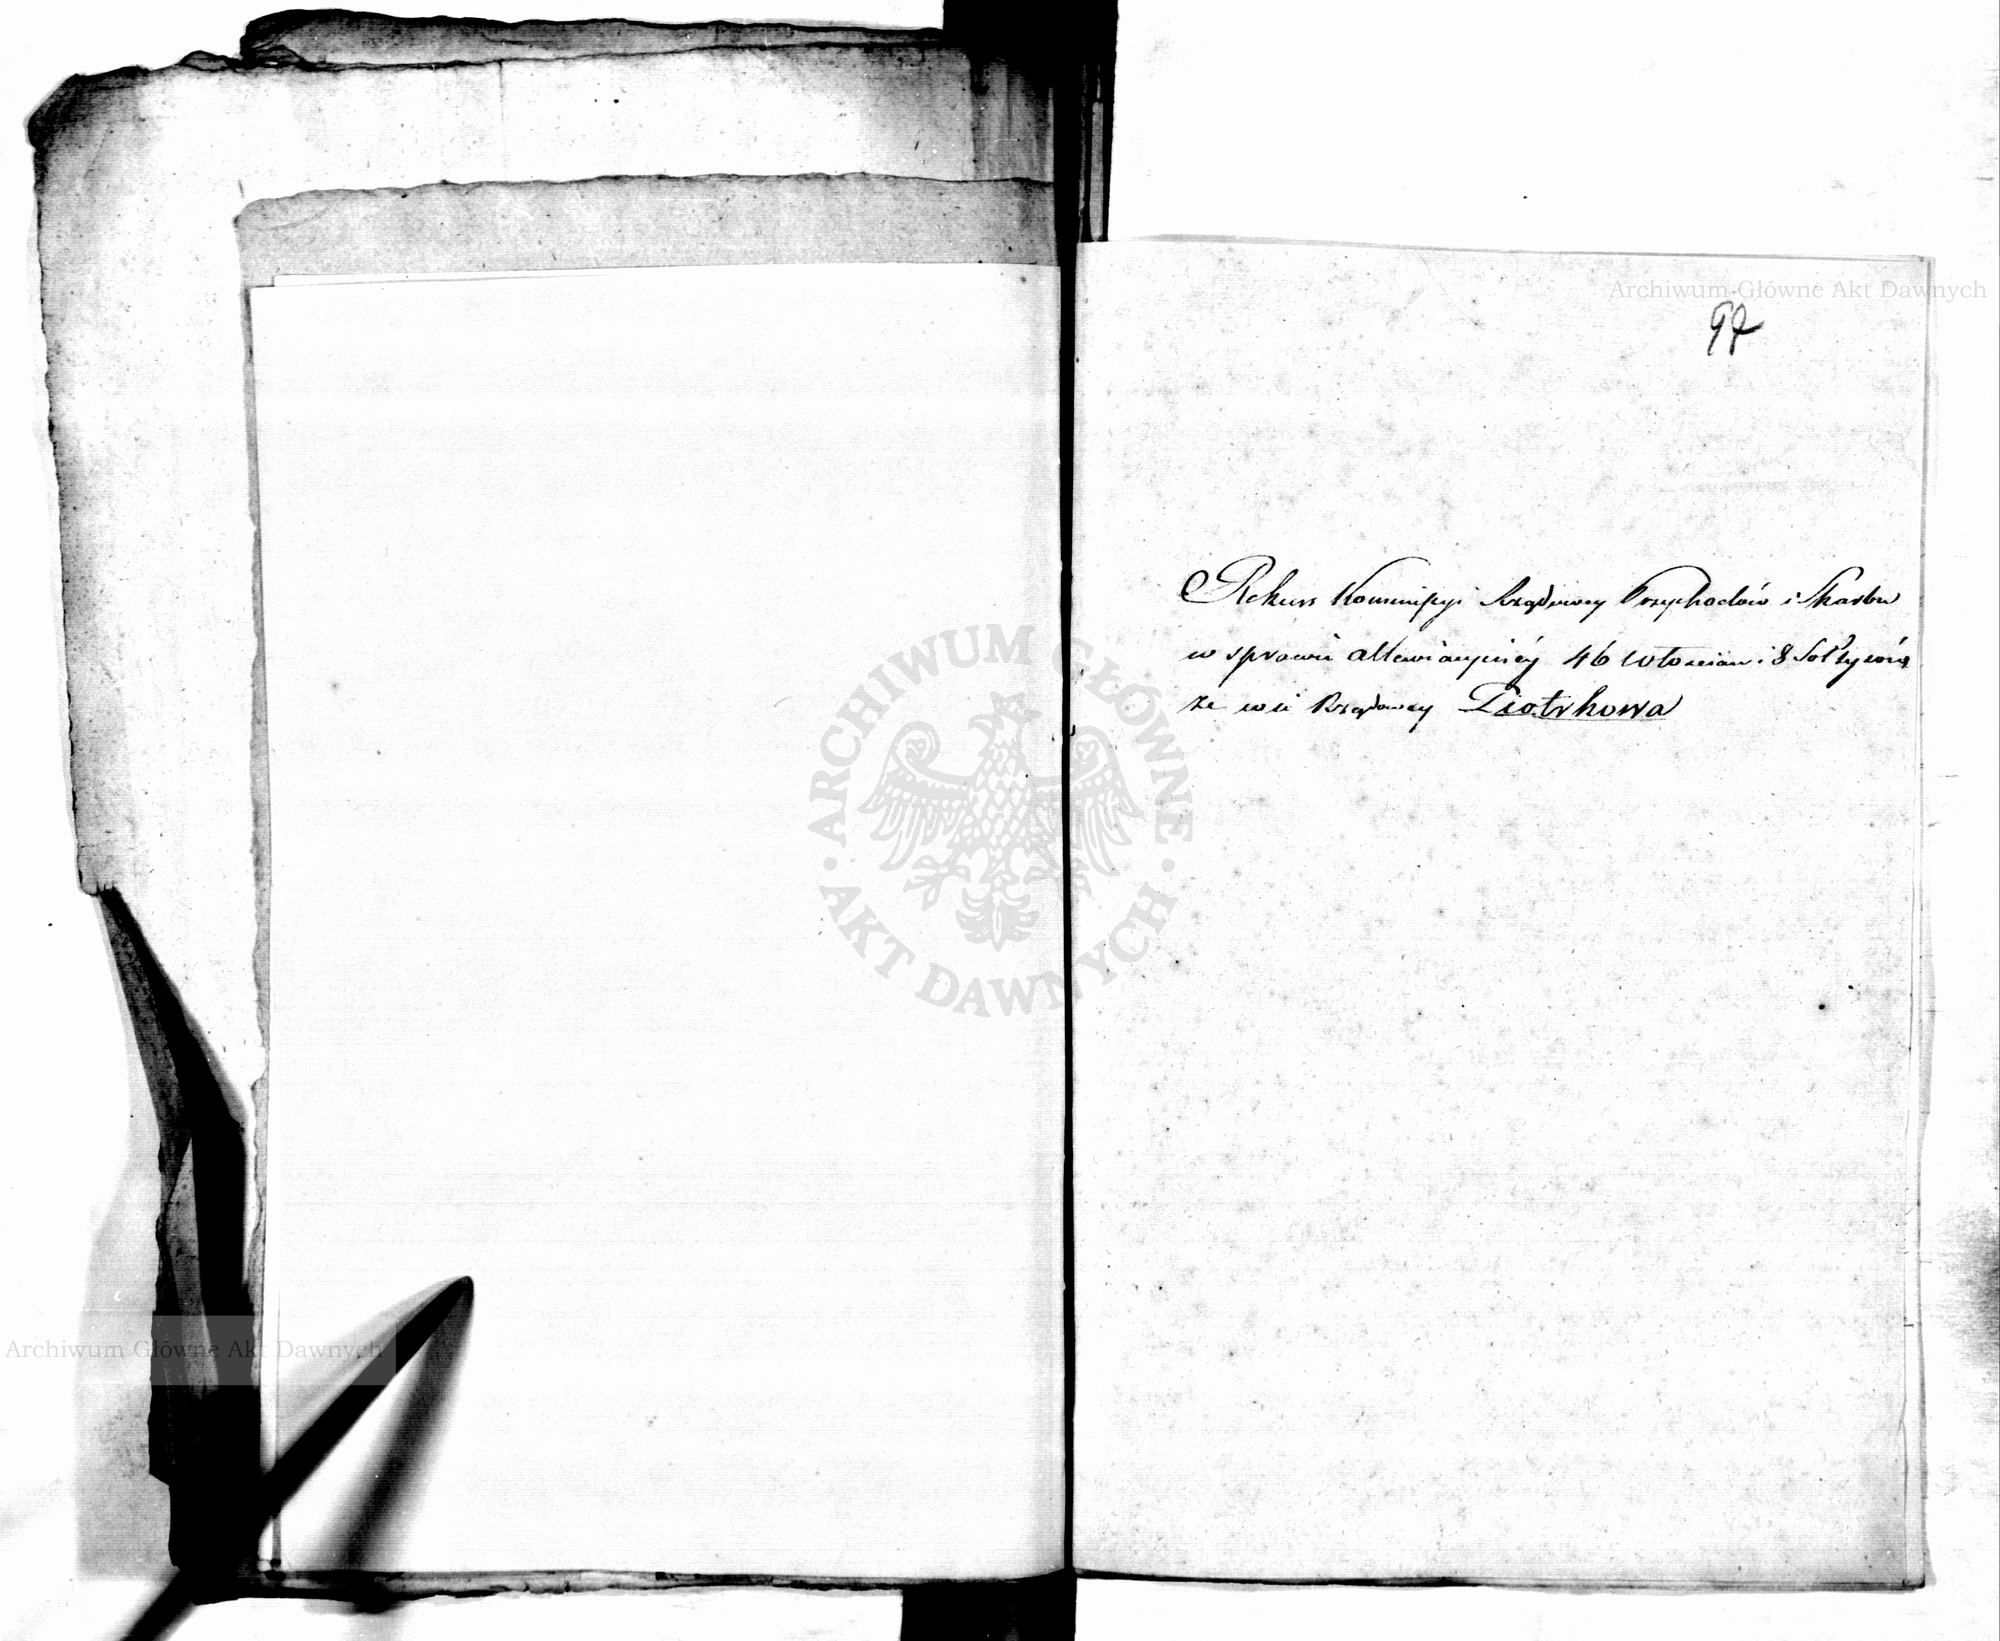 Archiwum Główne Akt Dawnych
97
Rekurs Kommissyi Rządowey Przychodów i Skarbu
w sprawie 46 Włościan i 8 Sołtysów
ze wsi Rządowey Piotrkowa
ARCHIWUM GŁÓWNE AKT DAWNYCH
Archiwum Główne Akt Dawnych